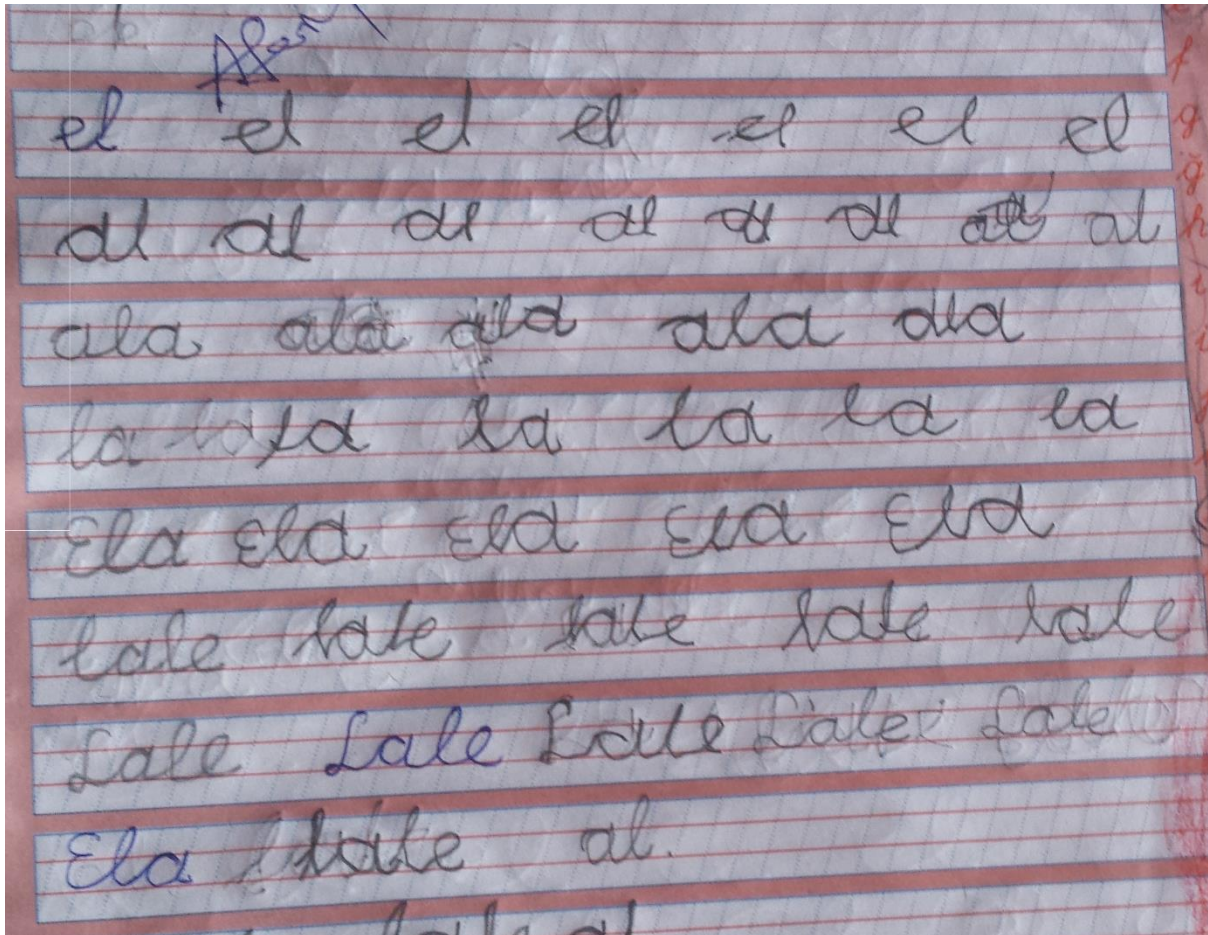 el el el el el el el
al al al al al al al al
ala ala ala ala ala
la la la la la la la
Ela Ela Ela Ela Ela
lale lale lale lale lale
Lale Lale Lale Lale Lale
Ela lale al.